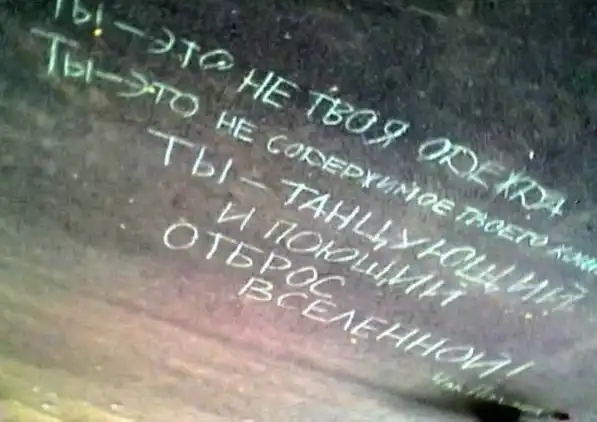 ТЫ – ЭТО НЕ ТВОЯ ОДЕЖДА
ТЫ – ЭТО НЕ СОДЕРЖИМОЕ ТВОЕГО
ТЫ – ТАНЦУЮЩИЙ
И ПОЮЩИЙ
ОТБРОС
ВСЕЛЕННОЙ!